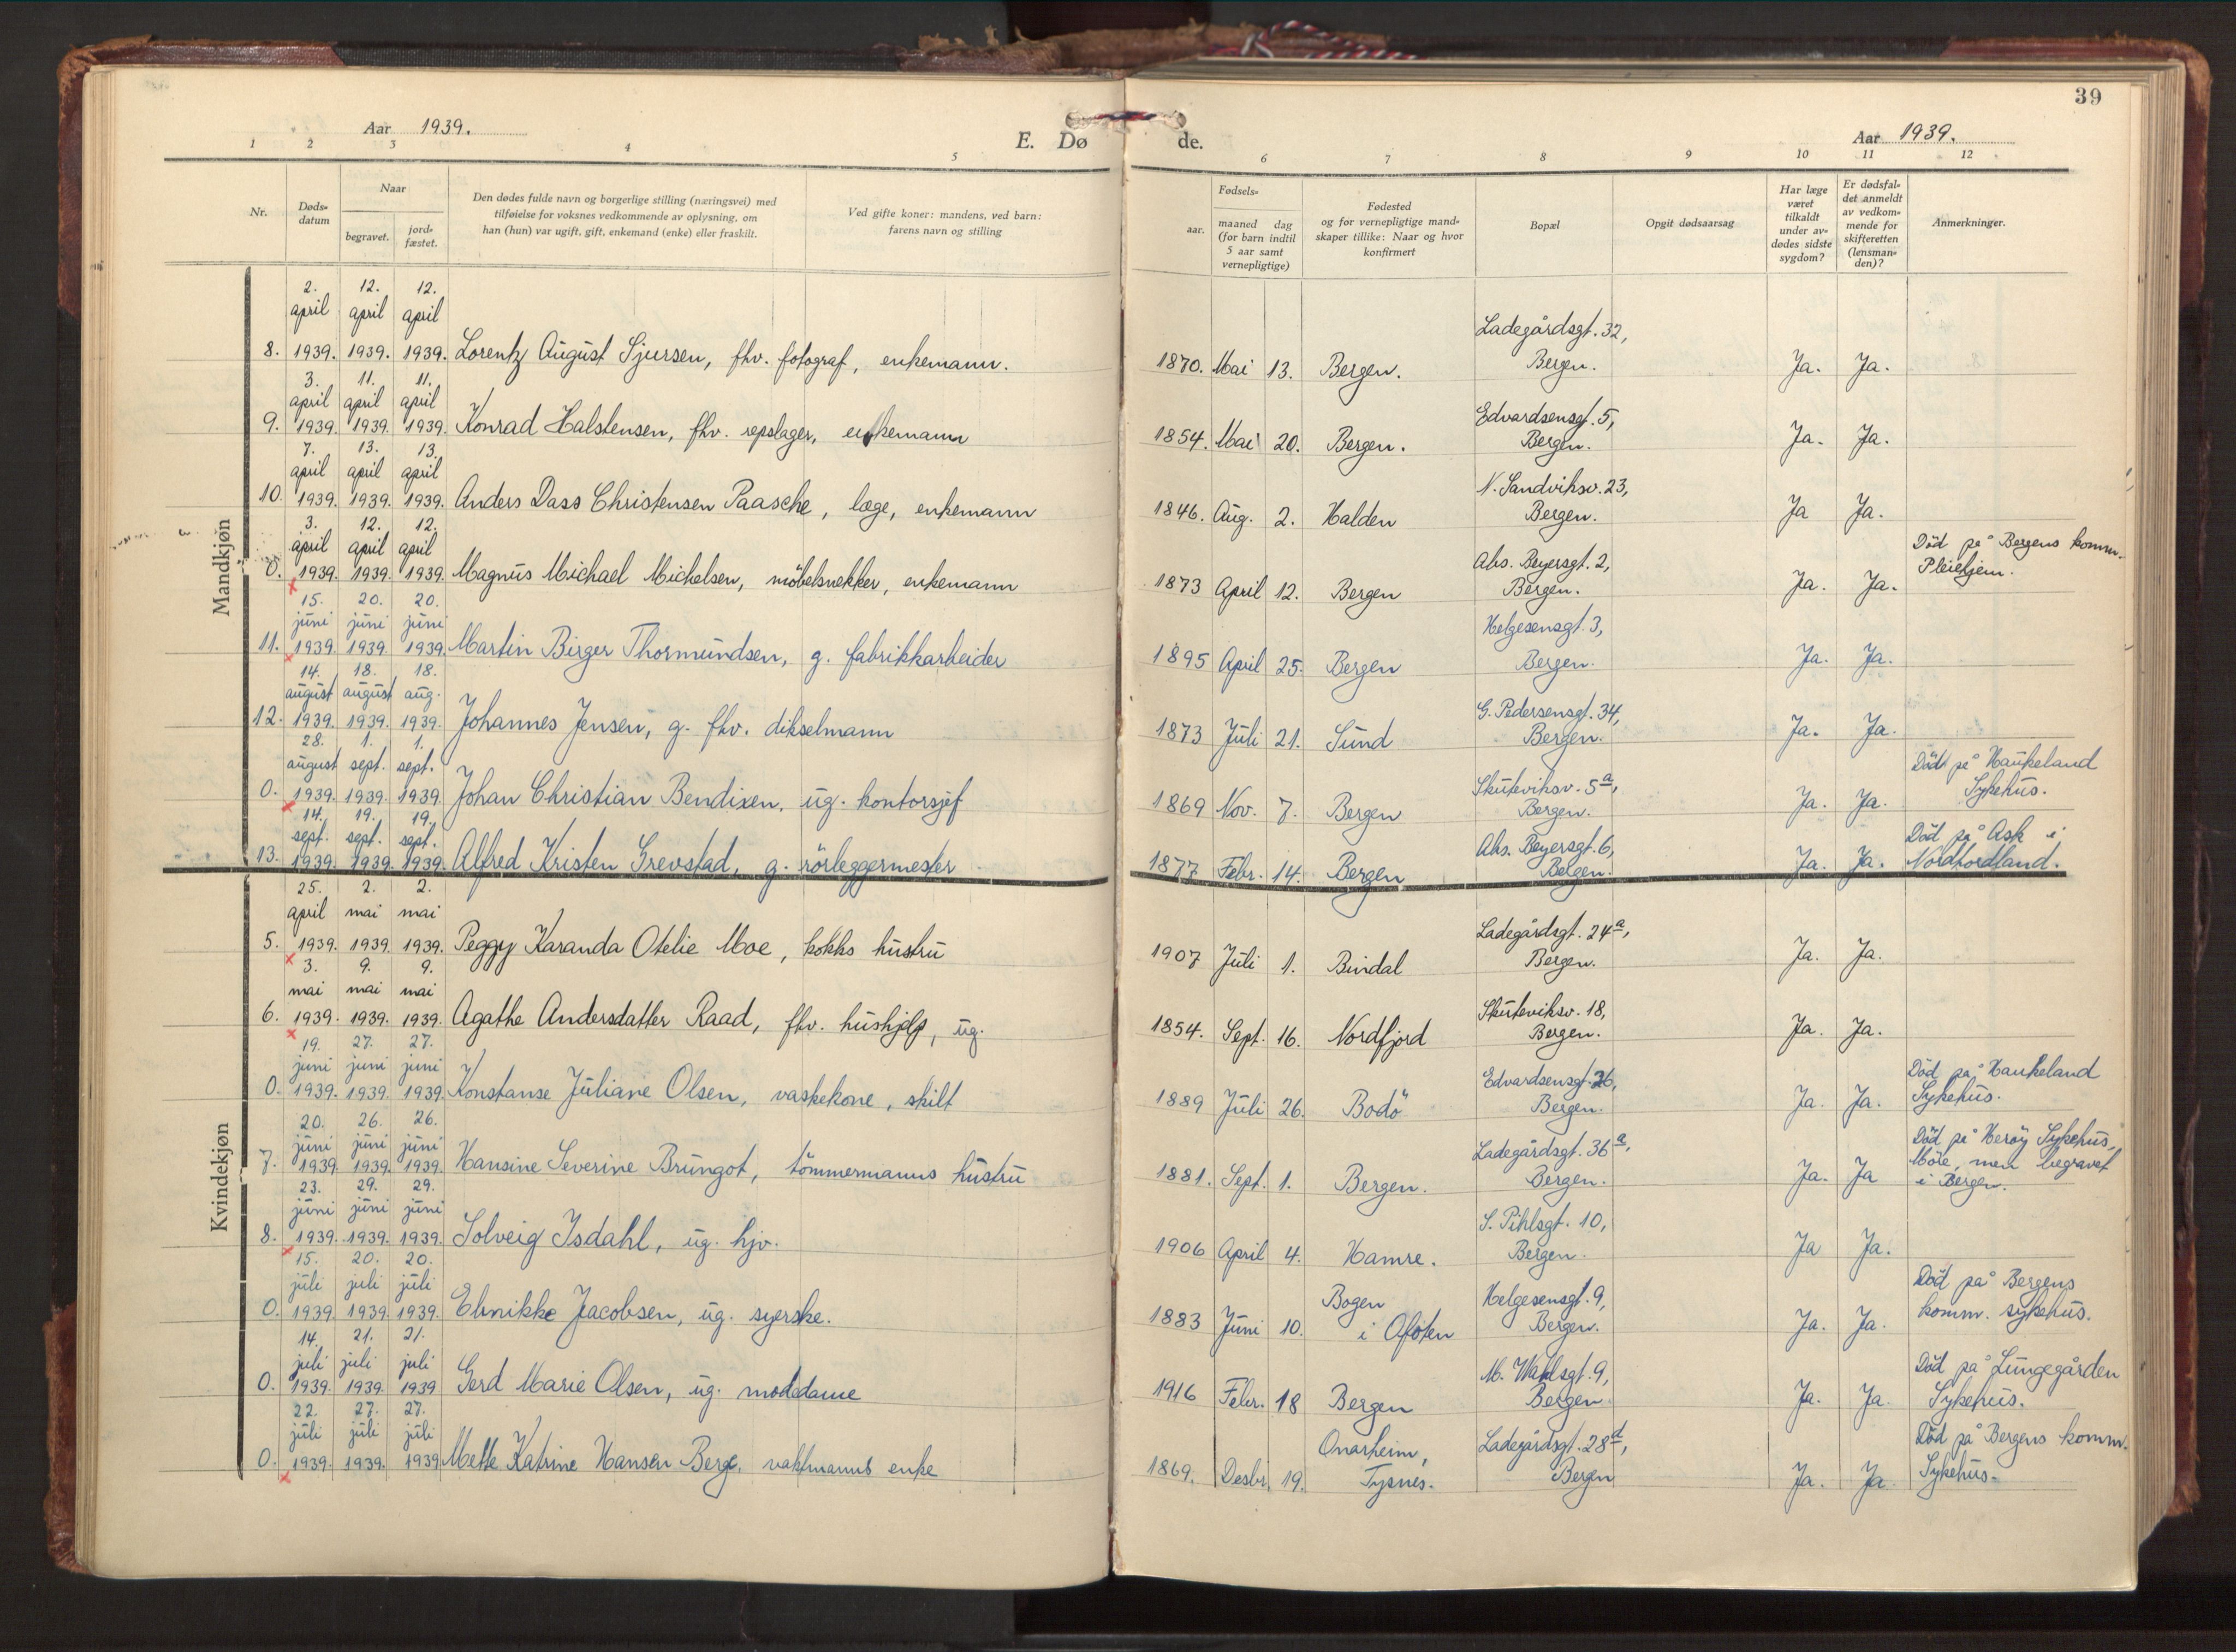 39
Aar 1939.
E. Dø
de.
Aar 1939.
1 2 3 4 5
6 7 8 9 10 11 12
Nr.
Døds-
datum
Naar
begravet.
jord-
fæstet.
Den dødes fulde navn og borgerlige stilling (næringsvei) med
tilføielse for voksnes vedkommende av oplysning, om
han (hun) var ugift, gift, enkemand (enke) eller fraskilt.
Ved gifte koner: mandens, ved barn:
farens navn og stilling
Fødsels-
aar.
maaned dag
(for barn indtil
5 aar samt
vernepligtige)
Fødested
og for vernepligtige mand-
skaper tillike: Naar og hvor
konfirmert
Bopæl
Opgit dødsaarsag
Har læge
været
tilkaldt
under av-
dødes sidste
sygdom?
Er dødsfal-
det anmeldt
av vedkom-
mende for
skifteretten
(lensman-
den)?
Anmerkninger.
Mandkjøn
2. 12. 12.
april april april
Ladegårdsgt. 32,
8. 1939. 1939. 1939. Lorentz August Sjursen, fhv. fotograf, enkemann. 1870. Mai 13. Bergen. Bergen. Ja. Ja.
3. 11. 11.
april april april
Edvardsensgt. 5,
9. 1939. 1939. 1939. Konrad Halstensen, fhv. repslager, enkemann 1854. Mai 20. Bergen. Bergen. Ja. Ja.
7. 13. 13.
april april april
N. Sandviksv. 23,
10. 1939. 1939. 1939. Anders Dass Christensen Paasche, læge, enkemann 1846. Aug. 2. Halden Bergen. Ja Ja.
3. 12. 12.
april april april
Abs. Beyersgt. 2, Död på Bergens komm.
0. 1939. 1939. 1939. Magnus Michael Michelsen, möbelsnekker, enkemann 1873 April 12. Bergen Bergen. Ja. Ja. Pleiehjem.
15. 20. 20.
juni juni juni
Helgesensgt. 3,
11. 1939. 1939. 1939. Martin Birger Thormundsen, g. fabrikkarbeider 1895 April 25. Bergen Bergen. Ja. Ja.
14. 18. 18.
august august aug.
G. Pedersensgt. 34,
12. 1939. 1939. 1939. Johannes Jensen, g. fhv. dikselmann 1873 Juli 21. Sund Bergen. Ja. Ja.
28. 1. 1.
august sept. sept.
Skuteviksv. 5a, Död på Haukeland
0. 1939. 1939. 1939 Johan Christian Bendixen, ug. kontorsjef 1869 Nov. 7. Bergen Bergen. Ja. Ja. Sykehus.
14. 19. 19.
sept. sept. sept.
Abs. Beyersgt. 6, Död på Ask i
13. 1939. 1939. 1939. Alfred Kristen Grevstad, g. rörleggermester 1877 Febr. 14. Bergen Belgen. Ja. Ja. Nordhordland.
Kvindekjøn
25. 2. 2.
april mai mai
Ladegårdsgt. 24a,
5. 1939. 1939. 1939. Peggy Karanda Otelie Moe, kokks hustru 1907 Juli 1. Bindal Bergen. Ja. Ja.
3. 9. 9.
mai mai mai
Skuteviksv. 18,
6. 1939. 1939. 1939. Agathe Andersdatter Raad, fhv. hushjelp, ug. 1854. Sept. 16. Nordfjord Bergen. Ja. Ja.
19. 27. 27.
juni juni juni
Edvardsensgt. 26, Död på Haukeland
0. 1939. 1939. 1939. Konstanse Juliane Olsen, vaskekone, skilt 1889 Juli 26. Bodö Bergen. Ja. Ja. Sykehus.
20. 26. 26.
juni juni juni
Ladegårdsgt. 36a, Död på Heröy Sykehus,
7. 1939. 1939. 1939. Hansine Severine Brungot, tömmermanns hustru 1881. Sept. 1. Bergen. Bergen. Ja. Ja Möre, men begravet
i Bergen.
23. 29. 29.
juni juni juni
S. Pihlsgt. 10,
8. 1939. 1939. 1939. Solveig Isdahl, ug. hjv. 1906 April 4. Hamre. Bergen. Ja Ja.
15. 20. 20.
juli juli juli
Bogen Helgesensgt. 9, Död på Bergens
0. 1939. 1939. 1939. Elnikke Jacobsen, ug. syerske. 1883 Juni 10. i Ofoten Bergen. Ja. Ja. komm. sykehus.
14. 21. 21.
juli juli juli
M. Wahlsgt. 9, Död på Lungegården
0. 1939. 1939. 1939 Gerd Marie Olsen, ug. motedame 1916 Febr. 18 Bergen Bergen. Ja. Ja. Sykehus.
22. 27. 27.
juli juli juli
Onarheim, Ladegårdsgt. 28d, Död på Bergens komm.
0. 1939. 1939. 1939 Mette Katrine Hansen Berge, vaktmanns enke 1869. Desbr. 19. Tysnes. Bergen Ja. Ja. Sykehus.